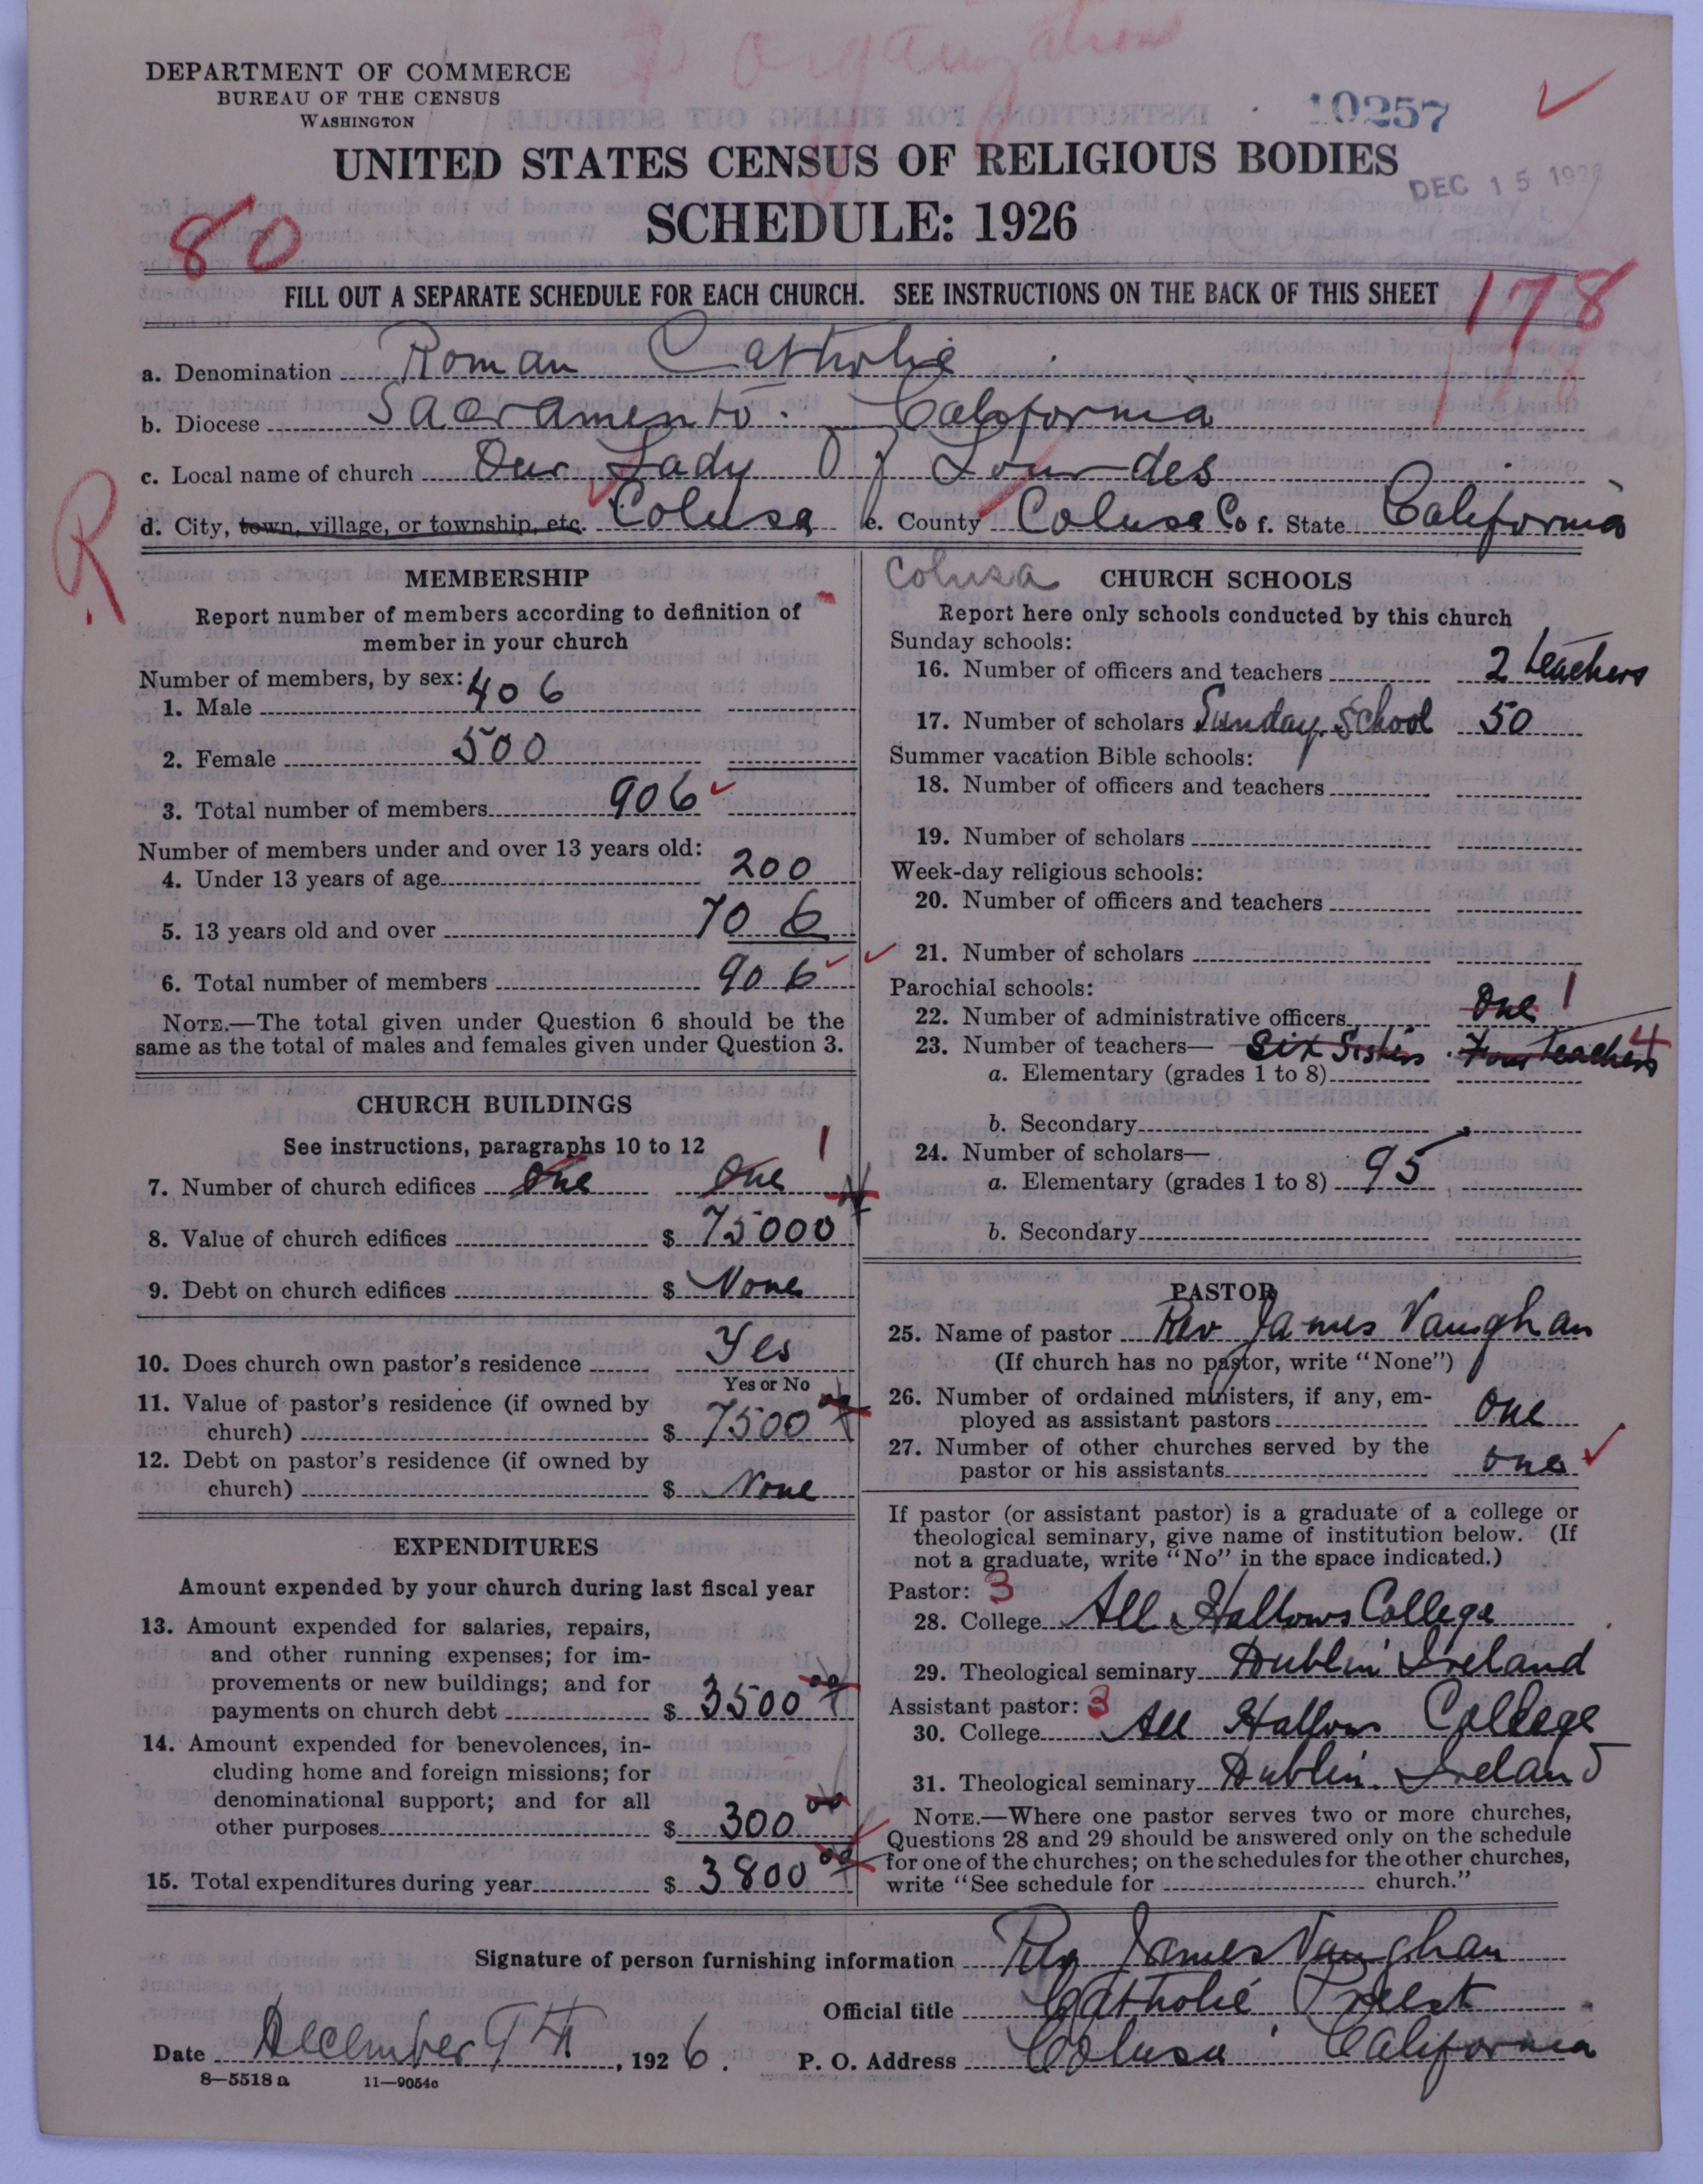 7 organizations
DEPARTMENT OF COMMERCE
BUREAU OF THE CENSUS
WASHINGTON
10257
UNITED STATES CENSUS OF RELIGIOUS BODIES
DEC 15 1926
SCHEDULE: 1926
80
FILL OUT A SEPARATE SCHEDULE FOR EACH CHURCH. SEE INSTRUCTIONS ON THE BACK OF THIS SHEET
178
a. Denomination Roman Catholic
b. Diocese Sacramento. California
c. Local name of church Our Lady Of Lourdes
d. City, town, village, or township, etc. Colusa e. County Colusa Co f. State California
R
MEMBERSHIP
Report number of members according to definition of
member in your church
Number of members, by sex:
1. Male 406
2. Female 500
3. Total number of members 906
Number of members under and over 13 years old:
4. Under 13 years of age 200
5. 13 years old and over 706
6. Total number of members 906
NOTE.—The total given under Question 6 should be the
same as the total of males and females given under Question 3.
CHURCH BUILDINGS
See instructions, paragraphs 10 to 12
7. Number of church edifices One One 1
8. Value of church edifices $ 75000
9. Debt on church edifices $ None
10. Does church own pastor's residence Yes
Yes or No
11. Value of pastor's residence (if owned by
church) $ 7500 00
12. Debt on pastor's residence (if owned by
church) $ None
EXPENDITURES
Amount expended by your church during last fiscal year
13. Amount expended for salaries, repairs,
and other running expenses; for im-
provements or new buildings; and for
payments on church debt $ 3500 00
14. Amount expended for benevolences, in-
cluding home and foreign missions; for
denominational support; and for all
other purposes $ 300 00
15. Total expenditures during year $ 3800 00
Colusa CHURCH SCHOOLS
Report here only schools conducted by this church
Sunday schools:
16. Number of officers and teachers 2 teachers
17. Number of scholars Sunday School 50
Summer vacation Bible schools:
18. Number of officers and teachers
19. Number of scholars
Week-day religious schools:
20. Number of officers and teachers
21. Number of scholars
Parochial schools:
22. Number of administrative officers One 1
23. Number of teachers— Six Sisters. Four Teachers 4
a. Elementary (grades 1 to 8)
b. Secondary
24. Number of scholars—
a. Elementary (grades 1 to 8) 95
b. Secondary
PASTOR
25. Name of pastor Rev James Vaughan
(If church has no pastor, write "None")
26. Number of ordained ministers, if any, em-
ployed as assistant pastors One
27. Number of other churches served by the
pastor or his assistants one
If pastor (or assistant pastor) is a graduate of a college or
theological seminary, give name of institution below. (If
not a graduate, write "No" in the space indicated.)
Pastor: 3
28. College All Hallows College
29. Theological seminary Dublin Ireland
Assistant pastor: 3
30. College All Hallows College
31. Theological seminary Dublin. Ireland
NOTE.—Where one pastor serves two or more churches,
Questions 28 and 29 should be answered only on the schedule
for one of the churches; on the schedules for the other churches,
write "See schedule for church."
Signature of person furnishing information Rev James Vaughan
Official title Catholic Priest
Date December 9th, 1926. P. O. Address Colusa California
8—5518 a 11—9054c